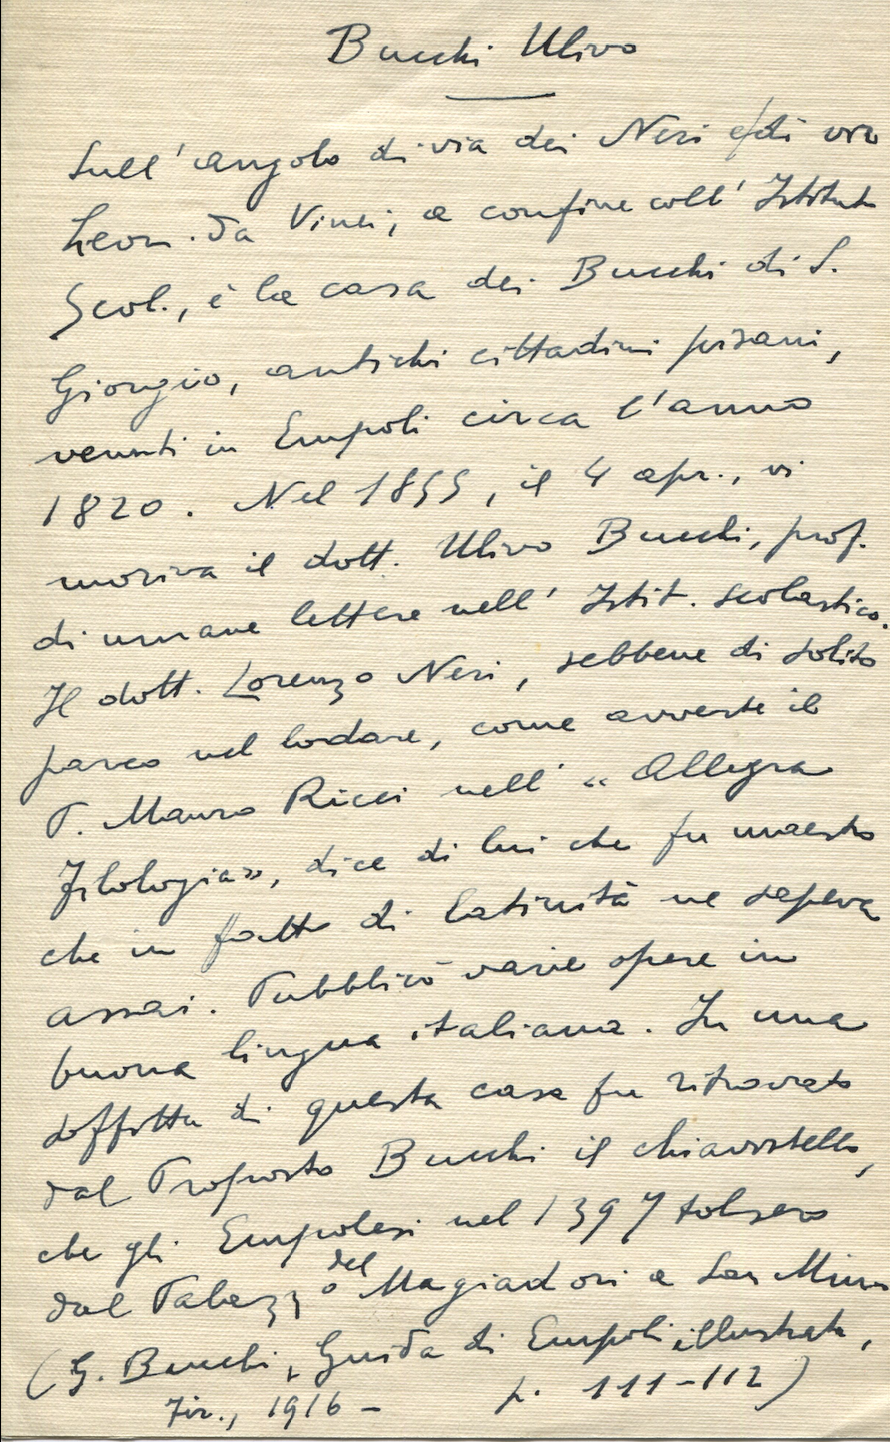 Bucchi Ulivo
Sull'angolo di via dei Neri e di via
Leon. da Vinci, a confine coll'Istituto
Scol., è la casa dei Bucchi di S.
Giorgio, antichi cittadini pisani,
venuti in Empoli circa l'anno
1820. Nel 1855, il 4 apr., vi
moriva il dott. Ulivo Bucchi, prof.
di umane lettere nell'Istit. scolastico.
Il dott. Lorenzo Neri, sebbene di solito
parco nel lodare, come avverte il
P. Mauro Ricci nell'« Allegra
Filologia», dice di lui che fu maestro
che in fatto di latinità ne sapeva
assai. Pubblicò varie opere in
buona lingua italiana. In una
soffitta di questa casa fu ritrovato
dal Proposto Bucchi il chiavistello,
che gli Empolesi nel 1397 tolsero
dal Palazzo del Magiadori a San Min.
(G. Bucchi, Guida di Empoli illustrata,
Fir., 1916 - p. 111-112)